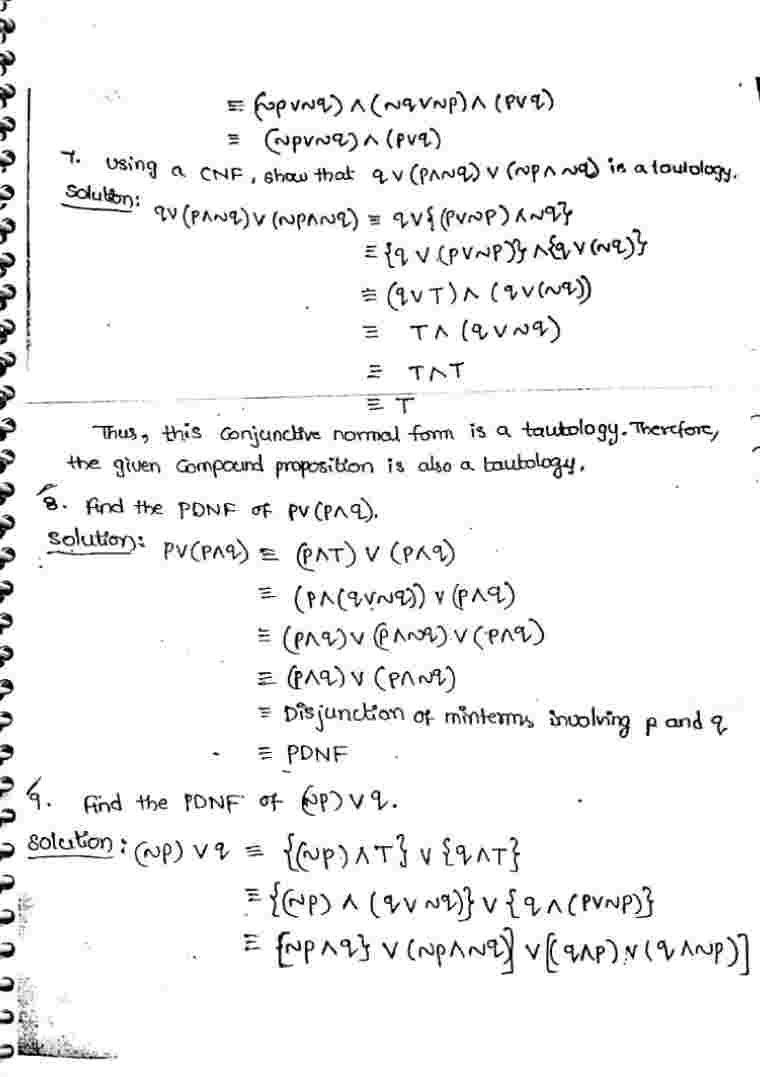 ≡ (~p∨~q) ∧ (~q∨~p) ∧ (p∨q)
≡ (~p∨~q) ∧ (p∨q)
7. Using a CNF, show that q∨(p∧~q)∨(~p∧~q) is a tautology.
Solution: q∨(p∧~q)∨(~p∧~q) ≡ q∨{(p∨~p)∧~q}
≡ {q∨(p∨~p)}∧{q∨(~q)}
≡ (q∨T)∧(q∨(~q))
≡ T∧(q∨~q)
≡ T∧T
≡ T
Thus, this Conjunctive normal form is a tautology. Therefore,
the given Compound proposition is also a tautology.
8. Find the PDNF of p∨(p∧q).
Solution: p∨(p∧q) ≡ (p∧T)∨(p∧q)
≡ (p∧(q∨~q))∨(p∧q)
≡ (p∧q)∨(p∧~q)∨(p∧q)
≡ (p∧q)∨(p∧~q)
≡ Disjunction of minterms involving p and q
≡ PDNF
9. Find the PDNF of (~p)∨q.
Solution: (~p)∨q ≡ {(~p)∧T}∨{q∧T}
≡ {(~p)∧(q∨~q)}∨{q∧(p∨~p)}
≡ [~p∧q}∨(~p∧~q)]∨[(q∧p)∨(q∧~p)]